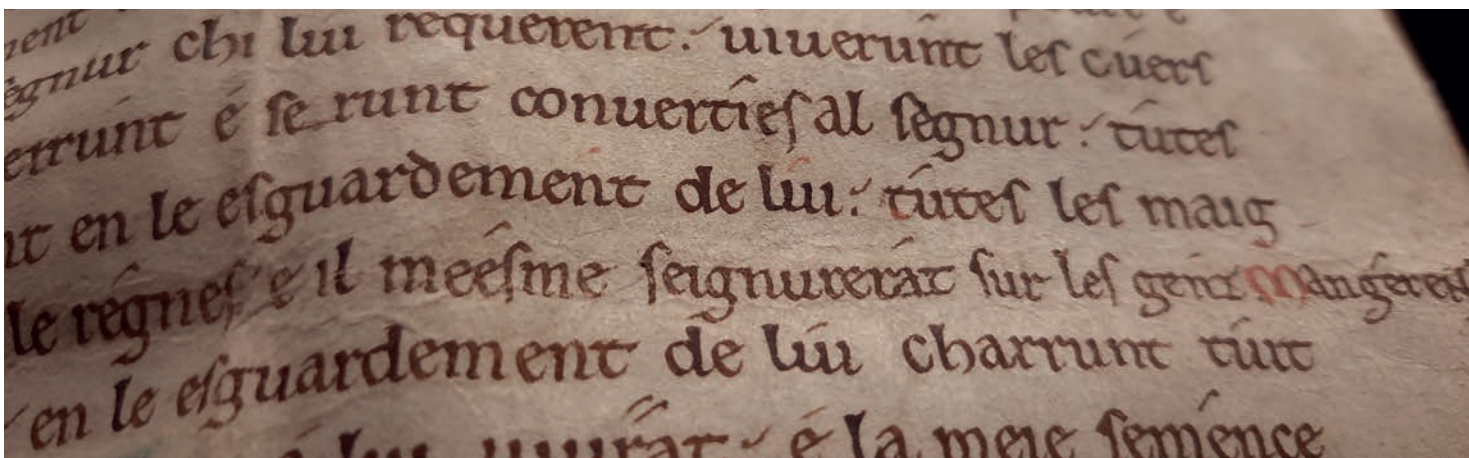 segnur chi lui requerent. uiuerunt les cuers
errunt é se runt conuerties al segnur. tutes
en le esguardement de lui. tutes les maig
le régnes é il meesme seignurerat sur les genz Mangerent
en le esguardement de lui charrunt tuit
lui uiurat. é la meie semence